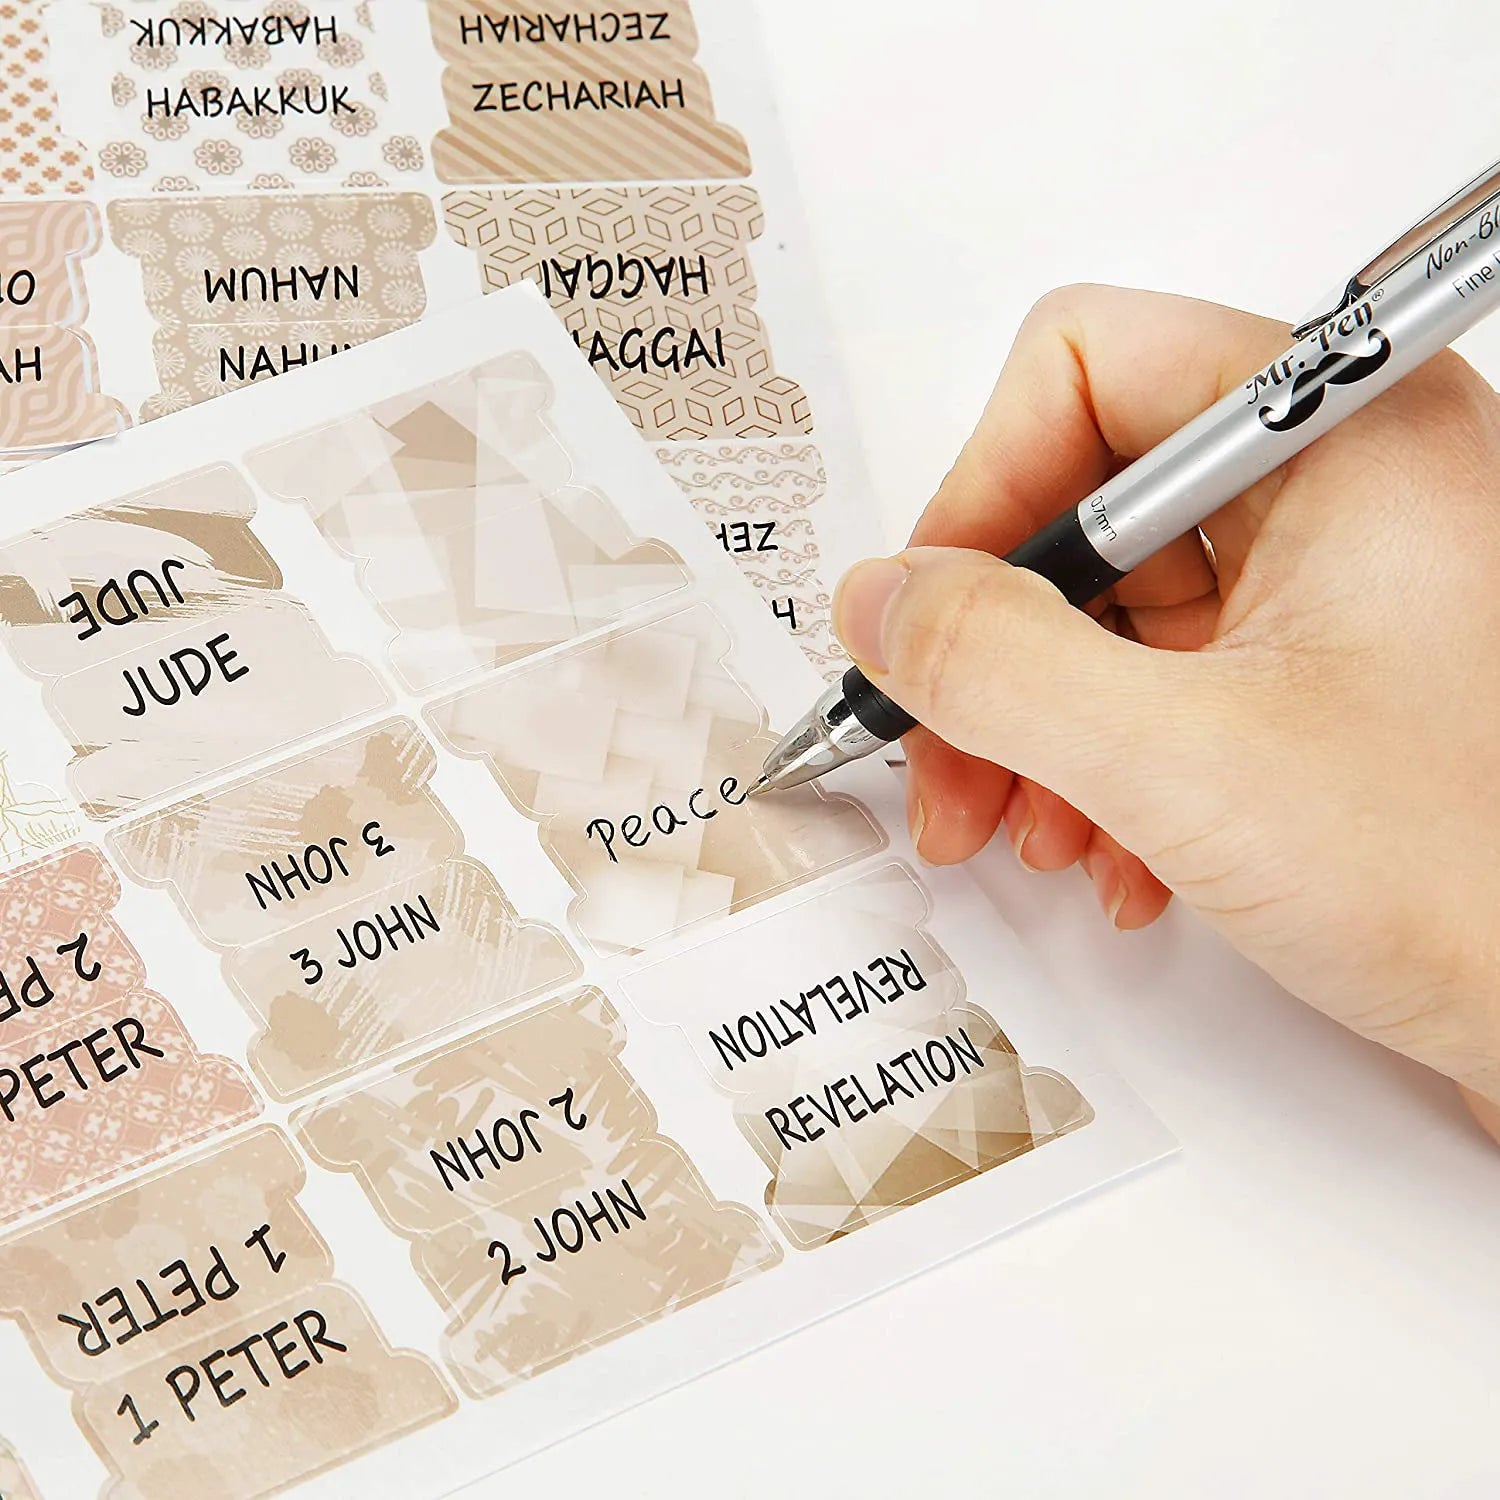 HABAKKUK
HABAKKUK
ZECHARIAH
ZECHARIAH
NAHUM
NAHUM
HAGGAI
HAGGAI
JUDE
JUDE
Peace
3 JOHN
3 JOHN
REVELATION
REVELATION
2 PE
PETER
2 JOHN
2 JOHN
1 PETER
1 PETER
Mr. Pen®
0.7mm
Non-Bl
Fine